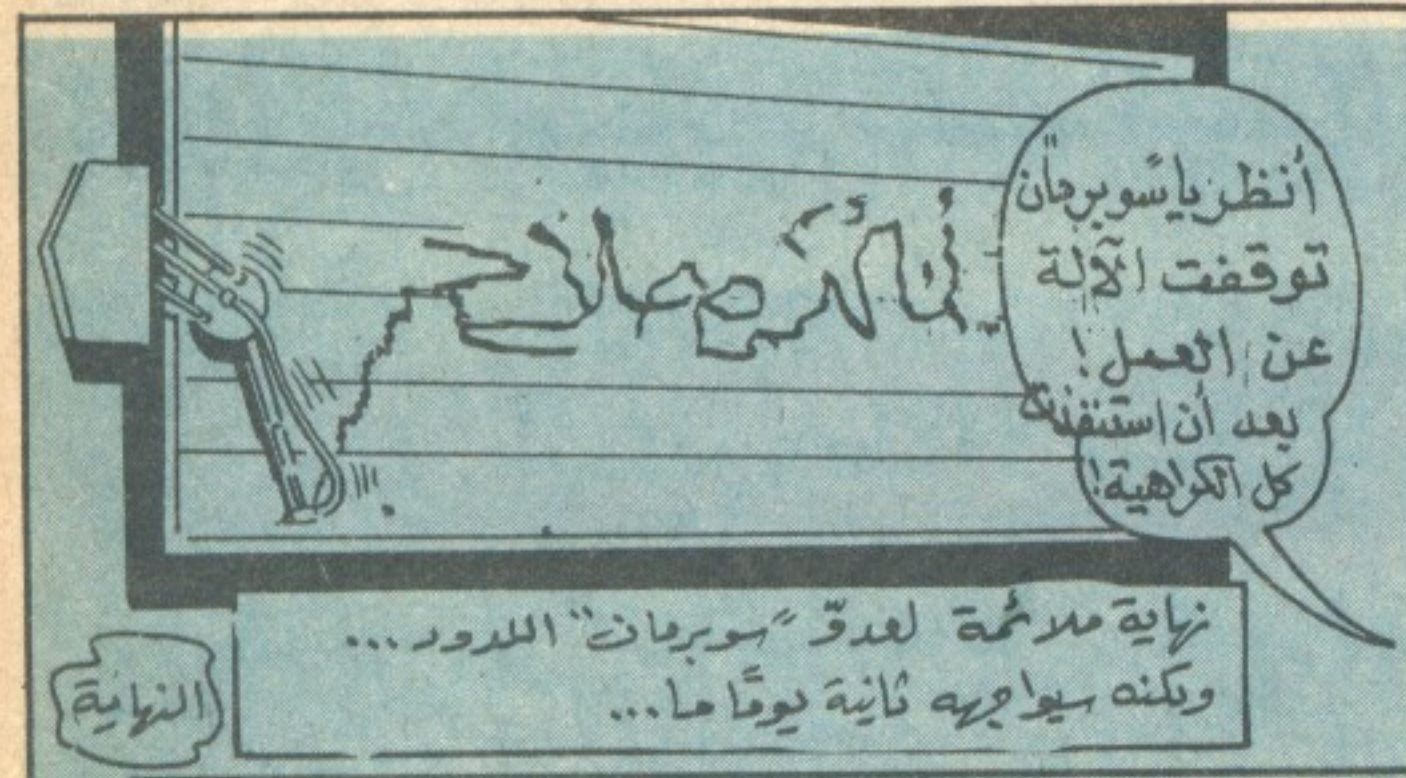 أنظر يا سوبرمان
توقفت الآلة
عن العمل!
بعد أن استنفذت
كل الكراهية!
أنا أكره
نهاية ملائمة لعدوّ "سوبرمان" اللدود...
ولكنه سيواجهه ثانية يومًا ما...
النهاية